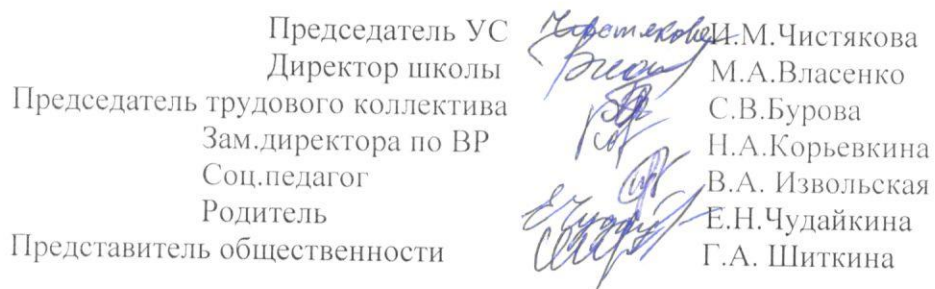 Председатель УС Чистякова И.М.Чистякова
Директор школы М.А.Власенко
Председатель трудового коллектива С.В.Бурова
Зам.директора по ВР Н.А.Корьевкина
Соц.педагог В.А. Извольская
Родитель Е.Н.Чудайкина
Представитель общественности Г.А. Шиткина